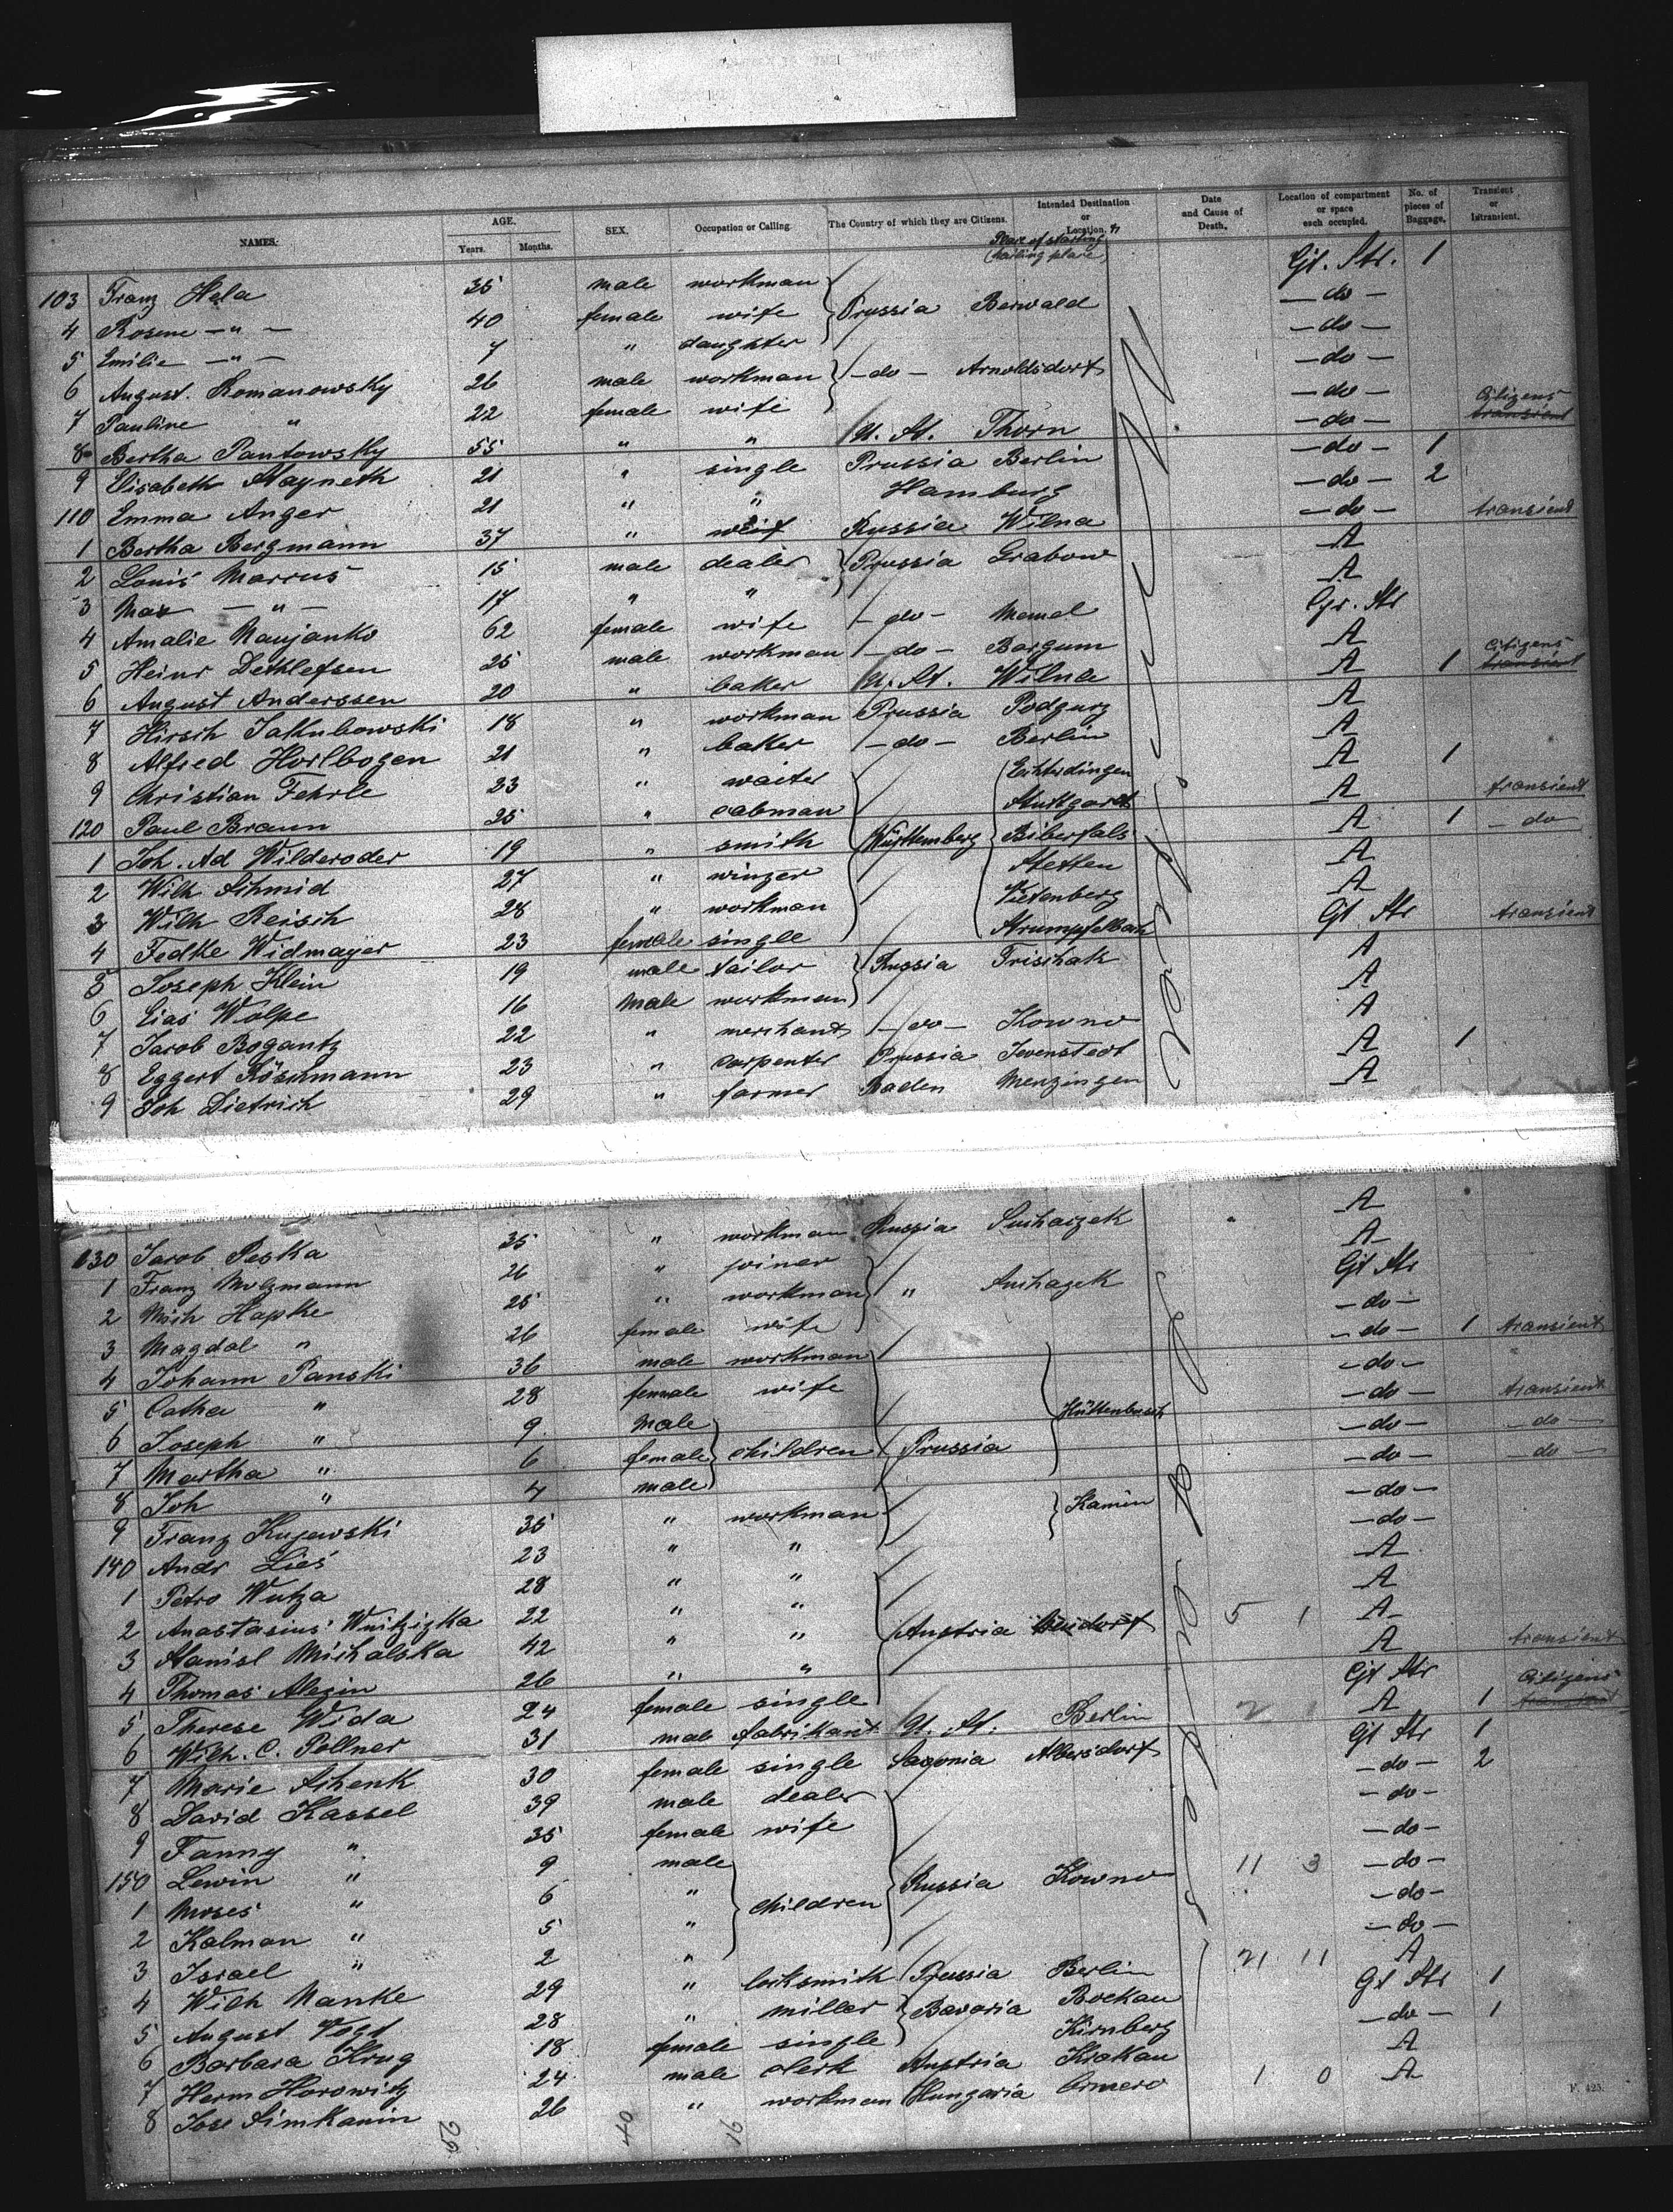 NAMES. AGE. Years. Months. SEX. Occupation or Calling. The Country of which they are Citizens. Intended Destination or Location. Date and Cause of Death. Location of compartment or space each occupied. No. of pieces of Baggage. Transient or Intransient.
Place of starting
(Mailing place)
103 Franz Hela 35 male workman Prussia Berwald Gt. Str. 1
4 Rosine — " — 40 female wife — do —
5 Emilie — " — 7 " daughter — do —
6 August Romanowsky 26 male workman — do — Arnoldsdorf — do —
7 Pauline " 22 female wife — do —
8 Bertha Pantowsky 55 " " U. St. Thorn — do — Citizens transient
9 Elisabeth Mayneth 21 " single Prussia Berlin — do — 1
110 Emma Anger 21 " " Hamburg — do — 2
1 Bertha Bergmann 37 " wife Russia Wilna — do — transient
2 Louis Marcus 15 male dealer Prussia Grabow A
3 Max — " — 17 " " A
4 Amalie Naujanko 62 female wife — do — Memel Gr. Str
5 Heinr Dethlefsen 25 male workman — do — Bargum A
6 August Anderssen 20 " baker U. St. Wilna A 1 Citizens transient
7 Hirsch Jakubowski 18 " workman Prussia Podgurz A
8 Alfred Horlbogen 21 " baker — do — Berlin A
9 Christian Fehrle 23 " waiter Württemberg Echterdingen A 1
120 Paul Braun 25 " cabman Stuttgart A transient
1 Joh. Ad Wilderoder 19 " smith Biberfals A 1 — do
2 Wilh Schmid 27 " winzer Stetten A
3 Wilh Reisch 28 " workman A
4 Fedke Widmayer 23 female single Strumpfelbach Gt Str transient
5 Joseph Klein 19 male tailor Russia Trischak A
6 Lias Wolpe 16 Male workman A
7 Jacob Bogantz 22 " merchant — do — Kowno A
8 Eggert Röschmann 23 " carpenter Prussia Jevenstedt A 1
9 Joh Dietrich 29 " farmer Baden Menzingen A
130 Jacob Peska 35 " workman Russia Suchaizek A
1 Franz Molzmann 26 " joiner A
2 Mich Hapke 25 " workman " Suchazek Gt Str
3 Magdal " 26 female wife — do —
4 Johann Panski 36 male workman Prussia Hüttenbusch — do — 1 transient
5 Catha " 28 female wife — do —
6 Joseph " 9 Male children — do — transient
7 Martha " 6 female — do — — do —
8 Joh " 4 male — do — — do —
9 Franz Kujewski 35 " workman Kamin — do —
140 Andr Lies 23 " " — do —
1 Petro Wutza 28 " " A
2 Anastasius Wnitzizka 22 " " Austria A
3 Stanisl Michalska 42 " " 5 1 A
4 Thomas Alezin 26 " " A transient
5 Therese Wida 24 female single Gt Str
6 Wilh. C. Pollner 31 male fabrikant U. St. Berlin 2 1 A 1 Citizens transient
7 Marie Schenk 30 female single Saxonia Albersdorf Gt Str 1
8 David Kassel 39 male dealer Russia Kowno — do — 2
9 Fanny " 35 female wife — do —
150 Lewin " 9 male children — do —
1 Moses " 6 " 11 3 — do —
2 Kalman " 5 " — do —
3 Israel " 2 " — do —
4 Wilh Nanke 29 " locksmith Prussia Berlin 21 11 A
5 August Vogt 28 " miller Bavaria Bockau Gt Str 1
6 Barbara Krug 18 female single Kirnberg — do — 1
7 Herm Horowitz 24 male clerk Austria Krakau A
8 Jose Simkanin 26 " workman Hungaria 1 0 A
25
F. 425.